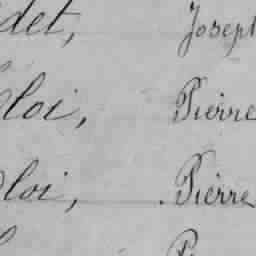 det, Joseph
loi, Pierre
loi, Pierre